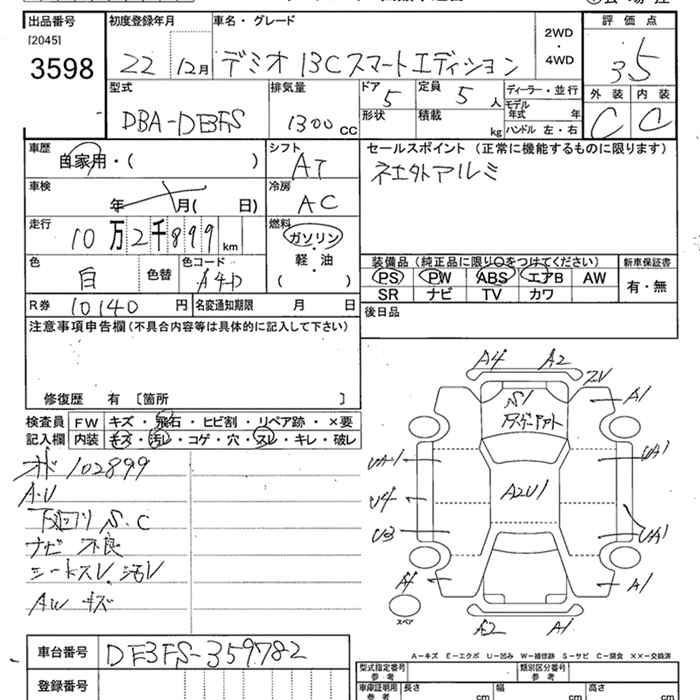 出品番号
[2045]
3598
初度登録年月
22 12月
車名・グレード
デミオ 13C スマートエディション
2WD
・
4WD
評価点
3.5
外装 内装
C C
型式
DBA-DE3FS
排気量
1300 CC
ドア
5
形状
定員
5 人
積載
kg
ディーラー・並行
モデル
年式 年
ハンドル 左・右
車歴
自家用・( )
シフト
AT
セールスポイント (正常に機能するものに限ります)
社外アルミ
車検
年 月( 日)
冷房
AC
走行
10万2千899 km
燃料
ガソリン
・
軽・油
( )
色
白
色替
色コード
A4D
装備品 (純正品に限り○をつけてください)
PS PW ABS エアB AW
SR ナビ TV カワ
新車保証書
有・無
R券 10140 円
名変通知期限 月 日
後日品
注意事項申告欄(不具合内容等は具体的に記入して下さい)
修復歴 有 [箇所 ]
検査員
記入欄
FW キズ・飛石・ヒビ割・リペア跡・×要
内装 キズ・汚レ・コゲ・穴・スレ・キレ・破レ
オド102899
A.U
下回り S.C
ナビ 不良
シートスレ.汚レ
AW キズ
A4 A2
A1
S1
UA1 UA1
U4 A2U1
U3 UA1
A4 A1
スペア
A2 A1
A-キズ E-エクボ U-凹み W-補修跡 S-サビ C-腐食 XX-交換済
車台番号
DE3FS-359782
登録番号
型式指定番号
参考
類別区分番号
参考
車庫証明用
参考
長さ cm
幅 cm
高さ cm